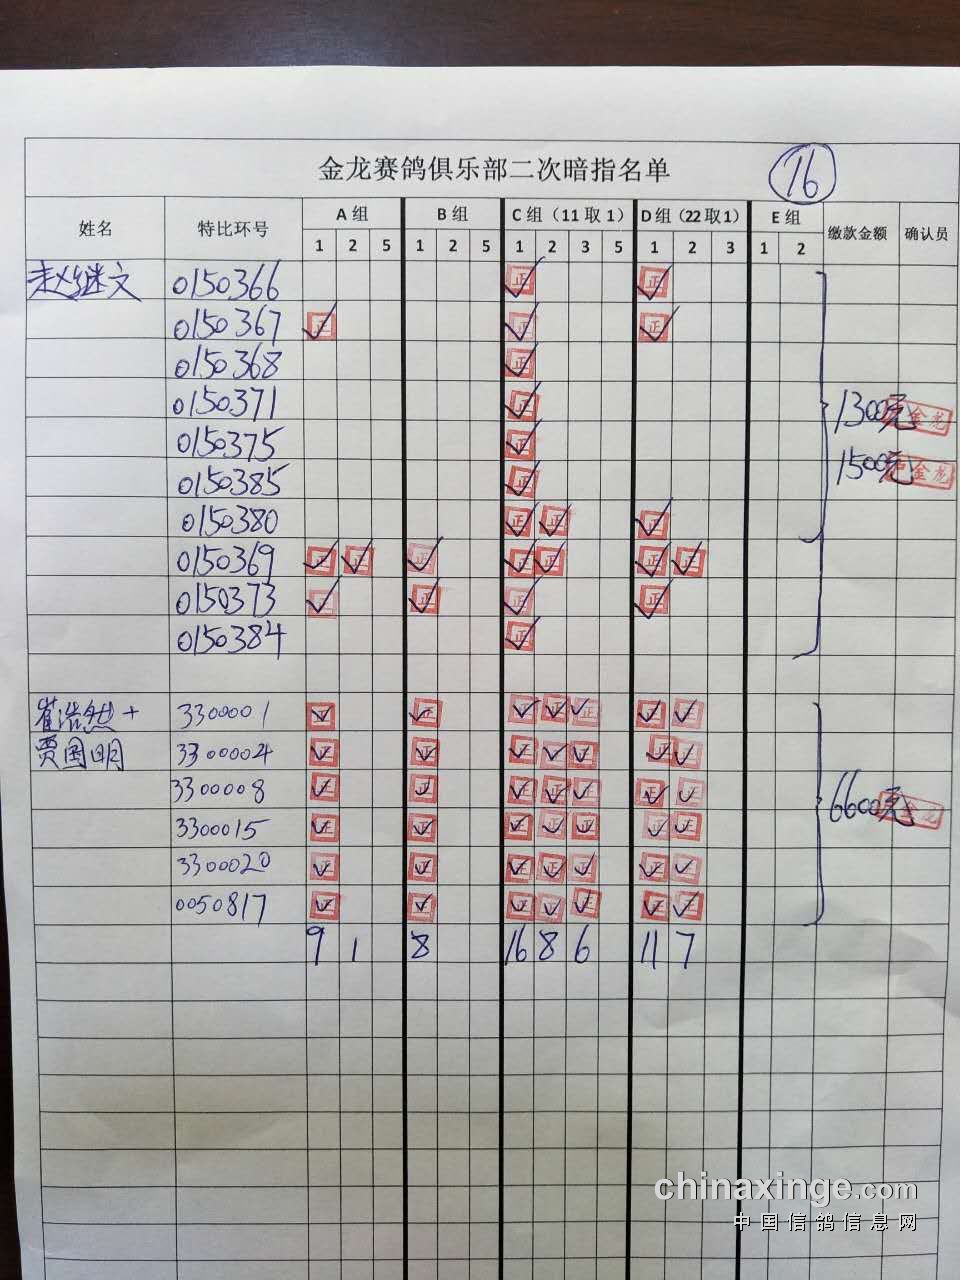 金龙赛鸽俱乐部二次暗指名单 16
姓名 特比环号 A组 B组 C组（11取1） D组（22取1） E组 缴款金额 确认员
1 2 5 1 2 5 1 2 3 5 1 2 3 1 2
赵继文 0150366 ✓正 ✓正
0150367 ✓正 ✓正 ✓正
0150368 ✓正
0150371 ✓正 1300元 金龙
0150375 ✓正
0150385 ✓正 1500元 金龙
0150380 ✓正 ✓正 ✓正
0150369 ✓正 ✓正 ✓正 ✓正 ✓正 ✓正 ✓正
0150373 ✓正 ✓正 ✓正 ✓正
0150384 ✓正
崔浩然+ 3300001 ✓正 ✓正 ✓正 ✓正 ✓正 ✓正 ✓正
贾国明 3300004 ✓正 ✓正 ✓正 ✓正 ✓正 ✓正 ✓正
3300008 ✓正 ✓正 ✓正 ✓正 ✓正 ✓正 ✓正 6600元 金龙
3300015 ✓正 ✓正 ✓正 ✓正 ✓正 ✓正 ✓正
3300020 ✓正 ✓正 ✓正 ✓正 ✓正 ✓正 ✓正
0050817 ✓正 ✓正 ✓正 ✓正 ✓正 ✓正 ✓正
9 1 8 16 8 6 11 7
chinaxinge.com
中国信鸽信息网